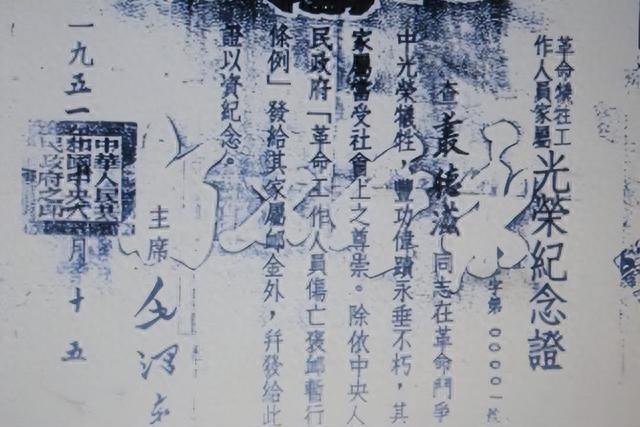 革命犧牲工
作人員家屬
光榮紀念證
字第 00001 號
查叢德滋同志在革命鬥爭
中光榮犧牲，豐功偉蹟永垂不朽，其
家屬當受社會上之尊崇。除依中央人
民政府「革命工作人員傷亡褒卹暫行
條例』發給其家屬卹金外，幷發給此
證以資紀念。
主席 毛澤东
一九五一 月十五
中華人民共
和國中央人
民政府之印